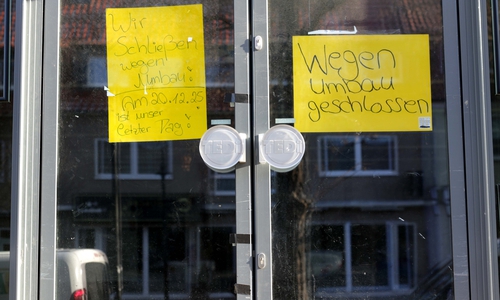 Wir
Schließen
wegen
Umbau!
Am 20.12.25
Ist unser
letzter Tag!
Wegen
umbau
geschlossen